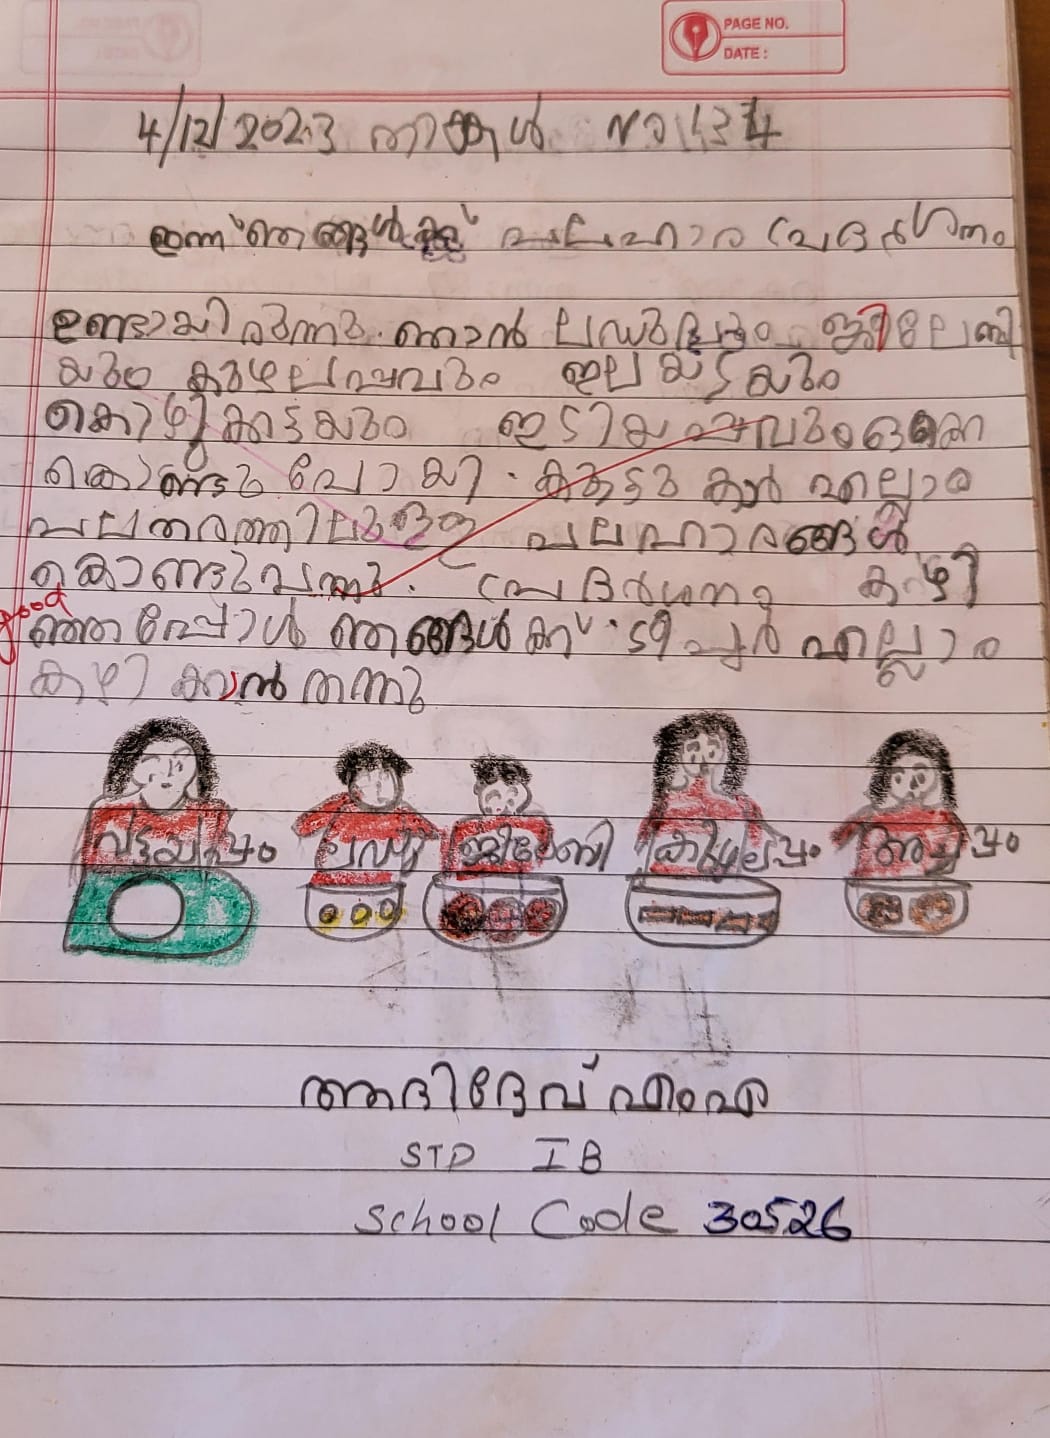 PAGE NO.
DATE :
4/12/2023 തിങ്കൾ
ഇന്ന് ഞങ്ങൾക്ക് പലഹാര പ്രദർശനം
ഉണ്ടായിരുന്നു. ഞാൻ ലഡുവും ജിലേബി
യും കുഴലപ്പവും ഇലയടയും
കൊഴുക്കട്ടയും ഇടിയപ്പവും ഒക്കെ
കൊണ്ടു പോയി. കൂട്ടുകാർ എല്ലാം
പലതരത്തിലുള്ള പലഹാരങ്ങൾ
കൊണ്ടുവന്നു. പ്രദർശനം കഴി
good
ഞ്ഞപ്പോൾ ഞങ്ങൾക്ക് ടീച്ചർ എല്ലാം
കഴിക്കാൻ തന്നു
വട്ടയപ്പം ലഡു ജിലേബി കുഴലപ്പം അച്ചപ്പം
ആദിദേവ് എംഎ
STD I B
School Code 30526